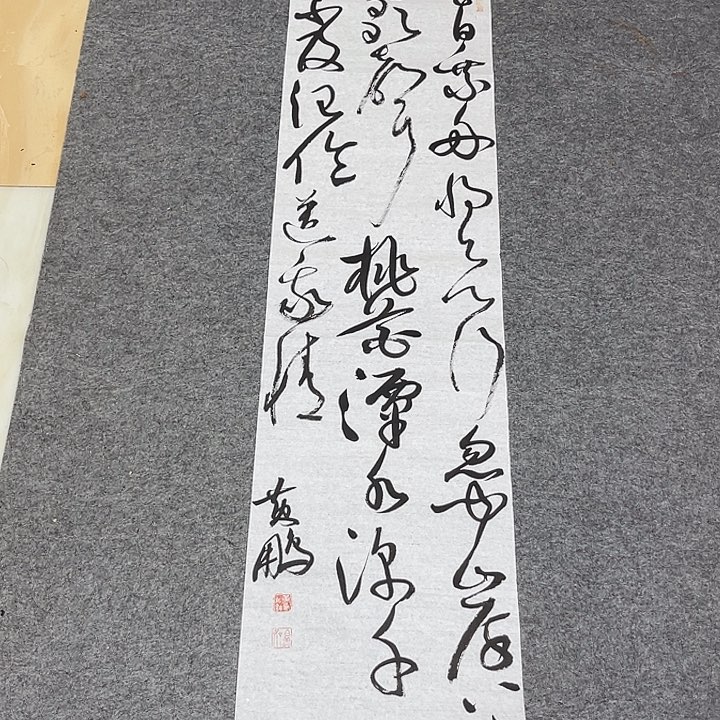 白乘舟将欲行忽闻岸上
歌声桃花潭水深千
不及汪伦送我情
黄鹏